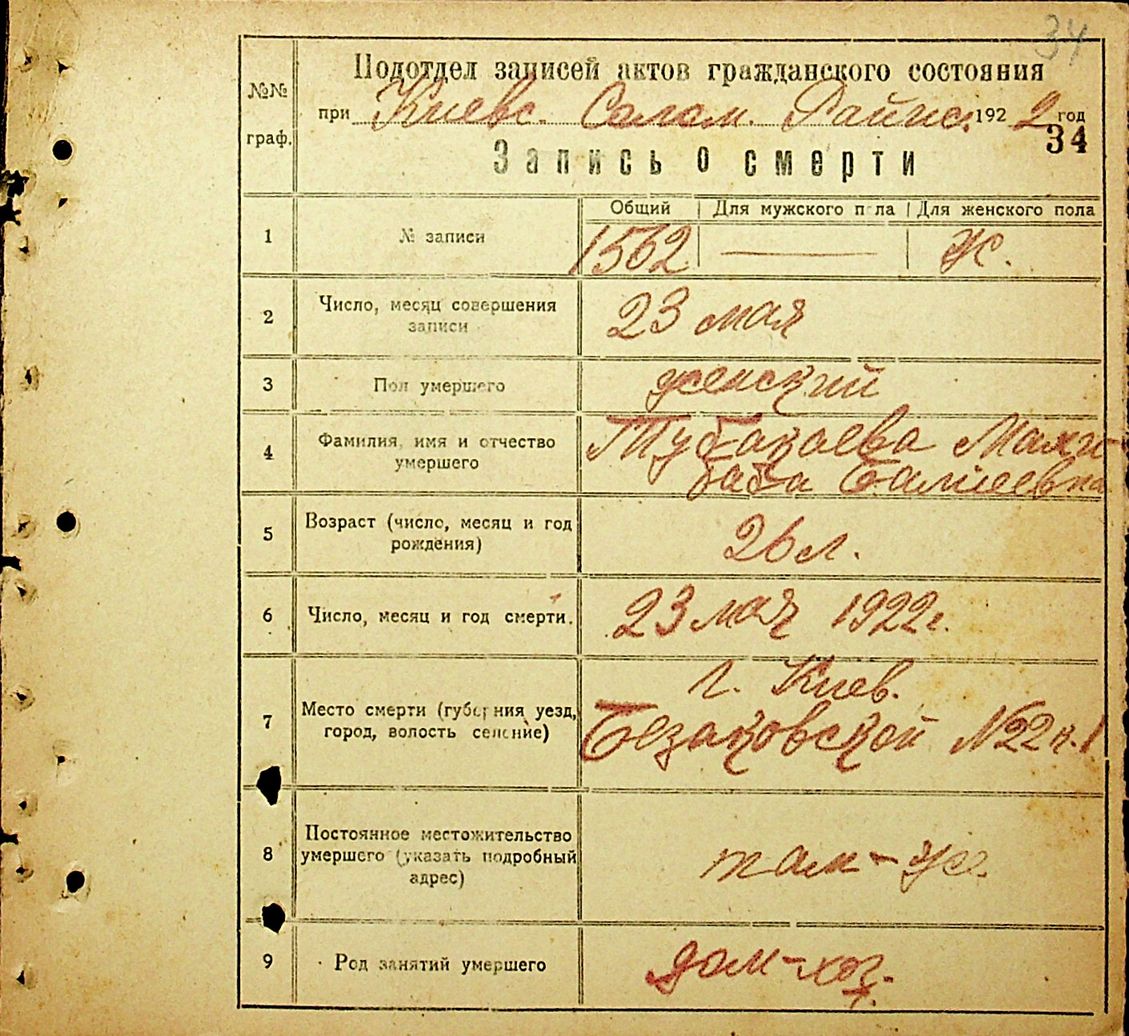 34
Подотдел записей актов гражданского состояния
№№ граф.
при Киевс. Солом. Райис. 1922 год
34
Запись о смерти
Общий Для мужского пола Для женского пола
1 № записи 1562 — Ж.
2 Число, месяц совершения
записи
23 мая
3 Пол умершего женский
4 Фамилия, имя и отчество
умершего
5 Возраст (число, месяц и год
рождения)
26 л.
6 Число, месяц и год смерти. 23 мая 1922 г.
7 Место смерти (губерния, уезд,
город, волость селение)
г. Киев.
Безаковской №22 к.1
8 Постоянное местожительство
умершего (указать подробный
адрес)
там-же.
9 Род занятий умершего дом-хоз.